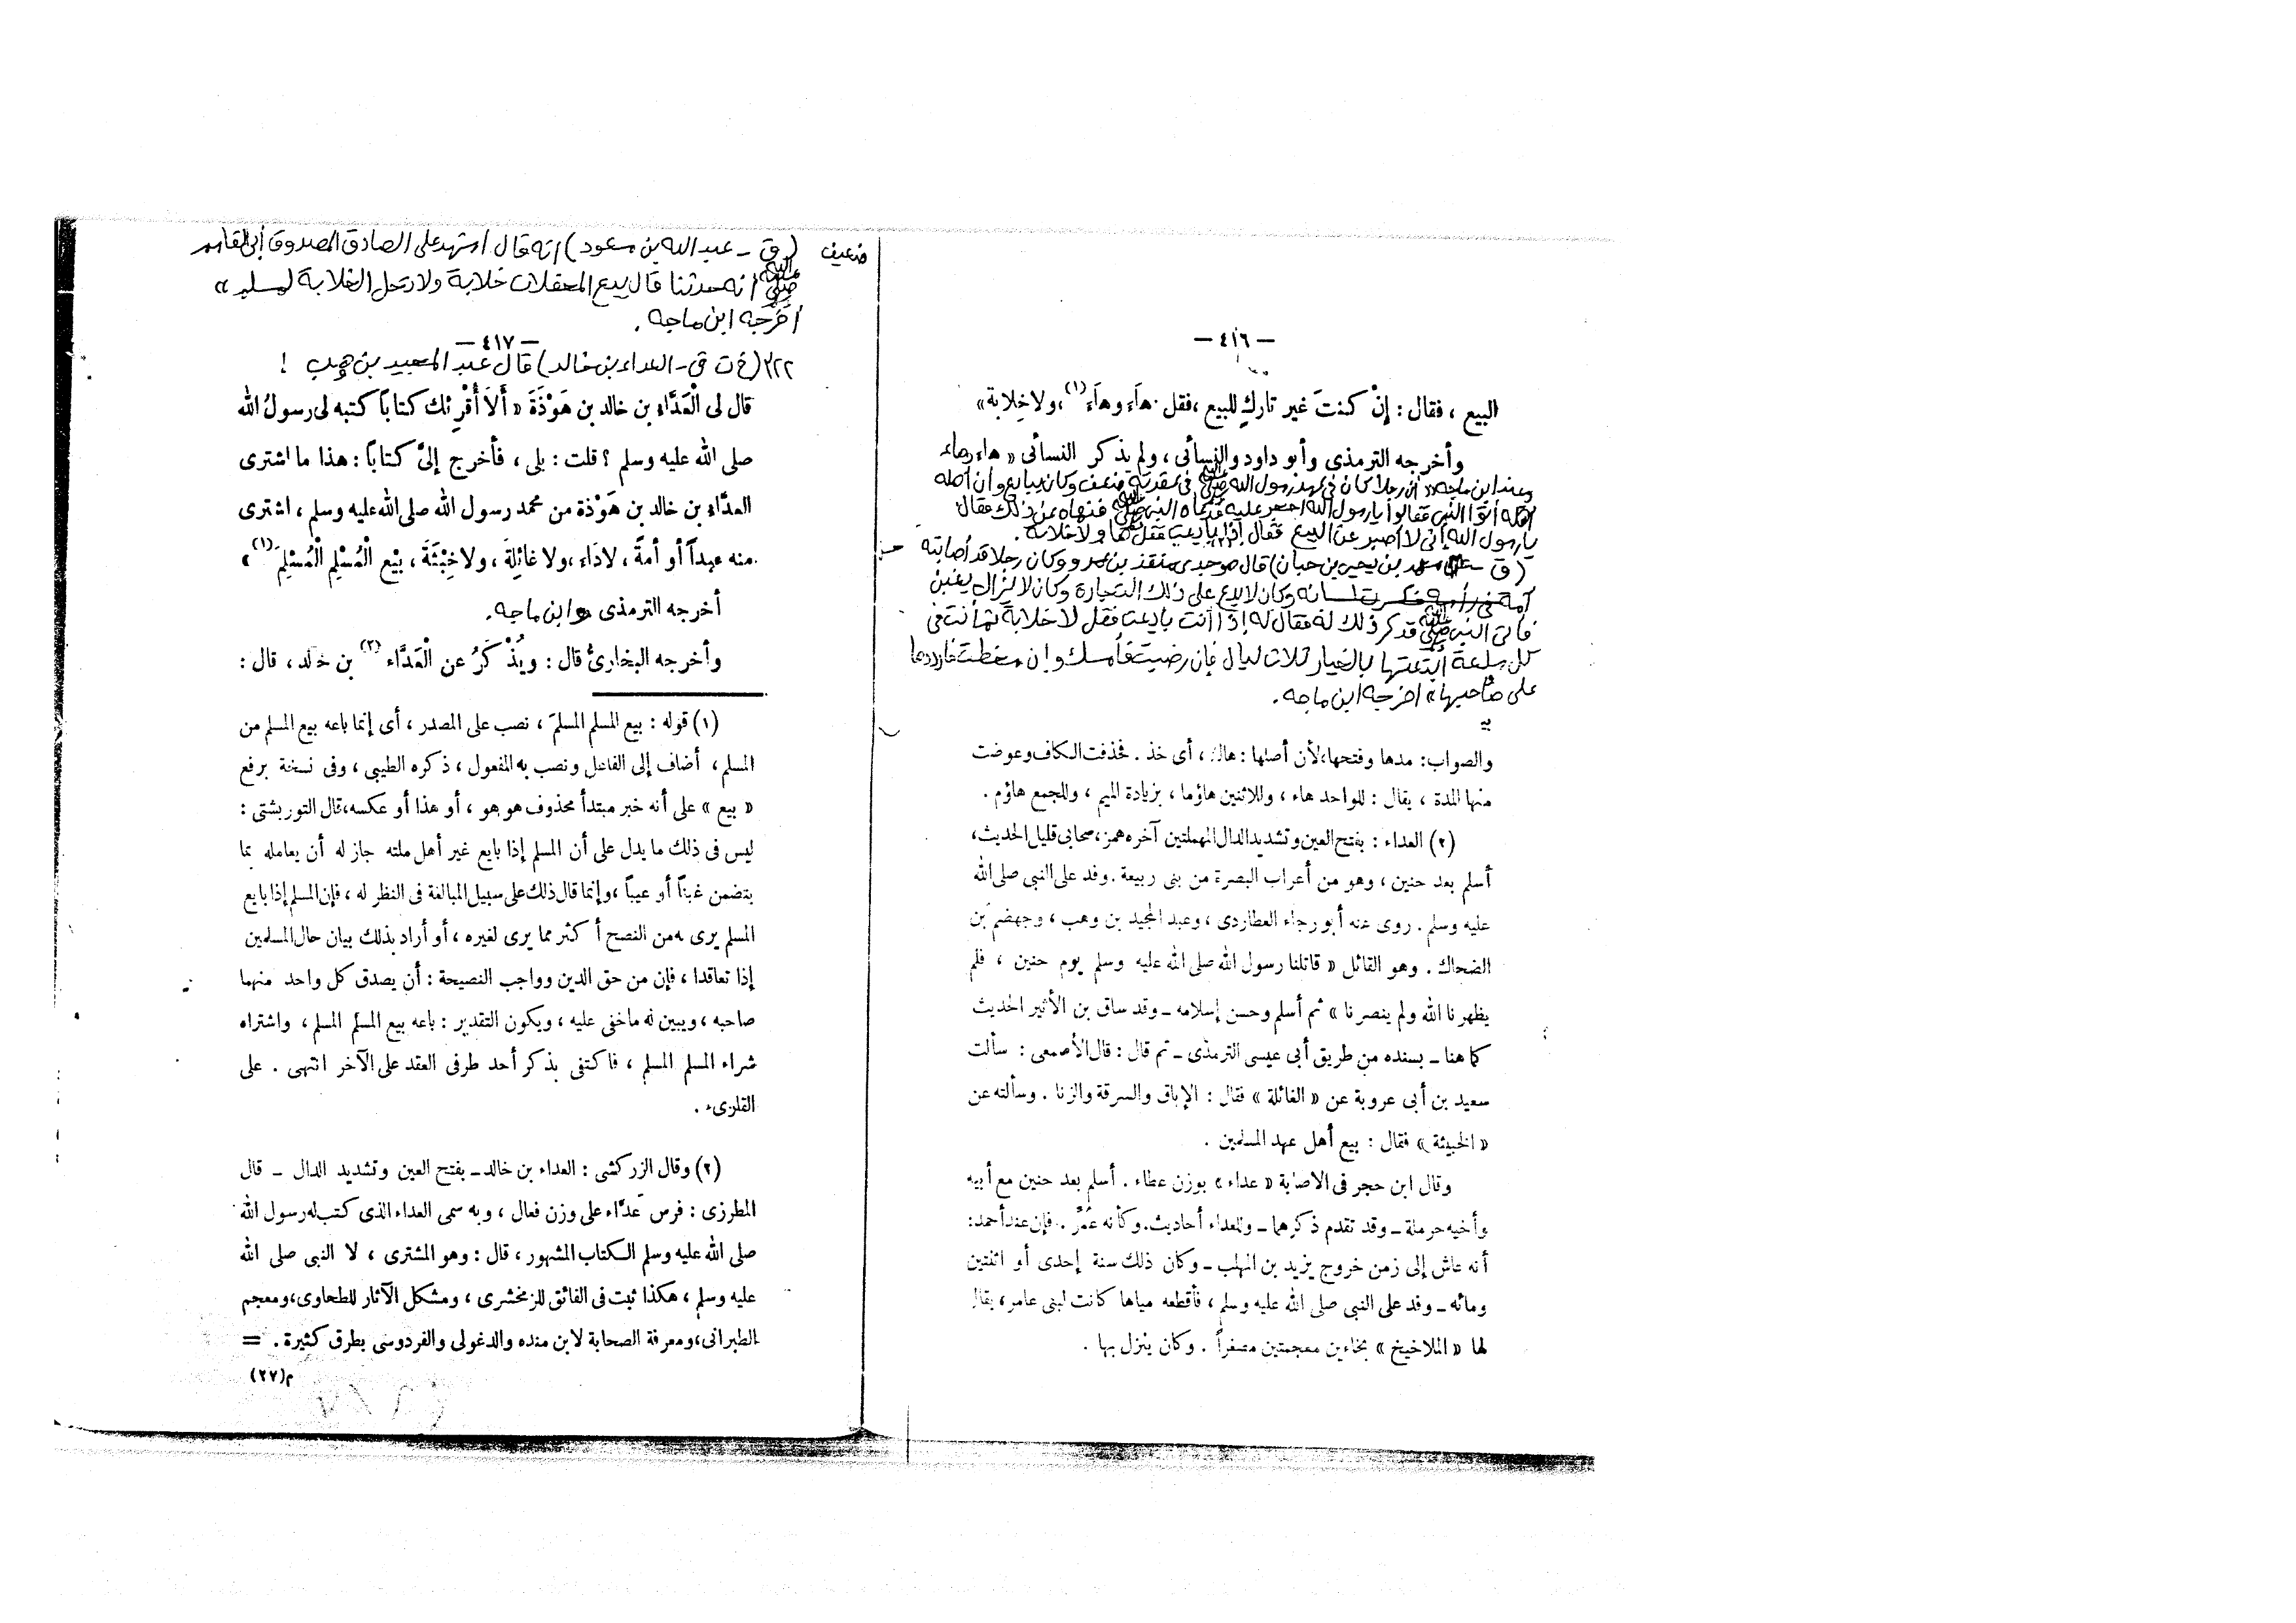 — ٤١٦ —
البيع ، فقال : إنْ كنتَ غير تاركٍ للبيع ، فقل : هاَء وهاَء (١) ، ولا خِلابة »
وأخرجه الترمذى وأبو داود والنسائى ، ولم يذكر النسائى « هاء وهاء
وعند ابن ماجه « أن رجلا كان فى عهد رسول الله ﷺ فى عقدته ضعف وكان يبايع وأن أهله
أتوا النبى فقالوا يا رسول الله احجر عليه فدعاه النبى ﷺ فنهاه عن ذلك فقال
يا رسول الله إنى لا أصبر عن البيع فقال إذا بايعت فقل ها ولا خلابة .
( ق – محمد بن يحيى بن حبان ) قال هو جدى منقذ بن عمرو وكان رجلا قد أصابته
آمة فى رأسه فكسرت لسانه وكان لا يدع على ذلك التجارة وكان لا يزال يغبن
فأتى النبى ﷺ فذكر ذلك له فقال له إذا أنت بايعت فقل لا خلابة ثم أنت فى
كل سلعة ابتعتها بالخيار ثلاث ليال فإن رضيت فأمسك وإن سخطت فارددها
على صاحبها » اخرجه ابن ماجه .
والصواب : مدها وفتحها ، لأن أصلها : هاك ، أى خذ . فحذفت الكاف وعوضت
منها المدة ، يقال : للواحد هاء ، وللاثنين هاؤما ، بزيادة الميم ، وللجمع هاؤم .
(٢) العداء : بفتح العين وتشديد الدال المهملتين آخره همز ، صحابى قليل الحديث ،
أسلم بعد حنين ، وهو من أعراب البصرة من بنى ربيعة . وفد على النبى صلى الله
عليه وسلم . روى عنه أبو رجاء العطاردى ، وعبد المجيد بن وهب ، وجهضم بن
الضحاك . وهو القائل « قاتلنا رسول الله صلى الله عليه وسلم يوم حنين ، فلم
يظهرنا الله ولم ينصرنا » ثم أسلم وحسن إسلامه ـ وقد ساق بن الأثير الحديث
كما هنا ـ بسنده من طريق أبى عيسى الترمذى ـ تم قال : قال الأصمعى : سألت
سعيد بن أبى عروبة عن « الغائلة » فقال : الإباق والسرقة والزنا . وسألته عن
« الخبيثة » فقال : بيع أهل عهد المسلمين .
وقال ابن حجر فى الاصابة « عداء » بوزن عطاء . أسلم بعد حنين مع أبيه
وأخيه حرملة ـ وقد تقدم ذكرهما ـ وللعداء أحاديث . وكأنه عُمِّر . فإن عند أحمد :
أنه عاش إلى زمن خروج يزيد بن المهلب ـ وكان ذلك سنة إحدى أو اثنتين
ومائه ـ وفد على النبى صلى الله عليه وسلم ، فأقطعه مياها كانت لبنى عامر ، يقال
لها « الملاخيخ » بخاءين معجمتين مصغراً . وكان ينزل بها .
ضعيف ( ق – عبد الله بن مسعود ) انه قال اشهد على الصادق المصدوق أبى القاسم
ﷺ انه حدثنا قال بيع المحفلات خلابة ولا تحل الخلابة لمسلم »
أخرجه ابن ماجه .
— ٤١٧ —
٣٢٢ ( خ ت ق - العداء بن خالد ) قال عبد المجيد بن وهب !
قال لى الْعَدَّاء بن خالد بن هَوْذَةَ « أَلَا أُقْرِئك كتاباً كتبه لى رسولُ الله
صلى الله عليه وسلم ؟ قلت : بلى ، فأخرج إلىَّ كتاباً : هذا ما اشترى
العدَّاء بن خالد بن هَوْذة من محمد رسول الله صلى الله عليه وسلم ، اشترى
منه عبداً أو أمةً ، لادَاء ، ولا غائِلةَ ، ولا خِبْثَةَ ، بيْع الْمُسْلِمِ الْمُسْلِمَ (١) »
أخرجه الترمذى وابن ماجه .
وأخرجه البخارىُّ قال : ويُذْكَرُ عن الْعَدَّاء (٢) بن خالد ، قال :
(١) قوله : بيع المسلم المسلمَ ، نصب على المصدر ، أى إنما باعه بيع المسلم من
المسلم ، أضاف إلى الفاعل ونصب به المفعول ، ذكره الطيبى ، وفى نسخة برفع
« بيع » على أنه خبر مبتدأ محذوف هو هو ، أو هذا أو عكسه ، قال التوربشتى :
ليس فى ذلك ما يدل على أن المسلم إذا بايع غير أهل ملته جاز له أن يعامله بما
يتضمن غبناً أو عيباً ، وإنما قال ذلك على سبيل المبالغة فى النظر له ، فإن المسلم إذا بايع
المسلم يرى له من النصح أكثر مما يرى لغيره ، أو أراد بذلك بيان حال المسلمين
إذا تعاقدا ، فإن من حق الدين وواجب النصيحة : أن يصدق كل واحد منهما
صاحبه ، ويبين له ما خفى عليه ، ويكون التقدير : باعه بيع المسلم المسلم ، واشتراه
شراء المسلم المسلم ، فاكتفى بذكر أحد طرفى العقد على الآخر انتهى . على
القارىء .
(٢) وقال الزركشى : العداء بن خالد ـ بفتح العين وتشديد الدال ـ قال
المطرزى : فرس عدَّاء على وزن فعال ، وبه سمى العداء الذى كتب له رسول الله
صلى الله عليه وسلم الكتاب المشهور ، قال : وهو المشترى ، لا النبى صلى الله
عليه وسلم ، هكذا ثبت فى الفائق للزمخشرى ، ومشكل الآثار للطحاوى ، ومعجم
الطبرانى ، ومعرفة الصحابة لابن منده والدغولى والفردوسى بطرق كثيرة . =
م (٢٧)